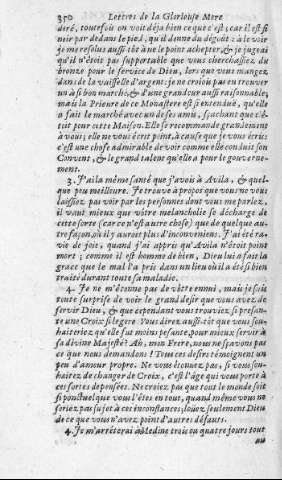 350 Lettres de la Glorieuse Mere
deré, toutefois on voit déja bien ce que c'est; car il est si
noir par dedans le pied, qu'il donne du dégoût à le voir
je me resolus aussi-tôt à ne le point achepter, & je jugeai
qu'il n'étois pas supportable que vous cherchassiez du
bronze pour le service de Dieu, lors que vous mangez
dans de la vaisselle d'argent: je ne croiois pas en trouver
un à si bon marché, & d'une grandeur aussi raisonnable,
mais la Prieure de ce Monastere est si entenduë, qu'elle
a fait le marché avec un de ses amis, sçachant que c'é-
toit pour cette Maison. Elle se recommande grandement
à vous; elle ne vous écrit point, à cause que je vous écris:
c'est une chose admirable de voir comme elle conduit son
Convent, & le grand talent qu'elle a pour le gouverne-
ment.
3. J'ai la même santé que j'avois à Avila, & quel-
que peu meilleure. Je trouve à propos que vous ne vous
laissiez pas voir par les personnes dont vous me parlez,
il vaut mieux que vôtre melancholie se décharge de
cette sorte (car ce n'est autre chose) que de quelque au-
tre façon, où il y auroit plus d'inconveniens. J'ai été ra-
vie de joie, quand j'ai appris qu'Avila n'étoit point
mort; comme il est homme de bien, Dieu lui a fait la
grace que le mal l'a pris dans un lieu où il a été si bien
traité durant toute sa maladie.
4. Je ne m'étonne pas de vôtre ennui, mais je suis
toute surprise de voir le grand desir que vous avez de
servir Dieu, & que cependant vous trouviez si pesan-
te une Croix si legere. Vous direz aussi-tôt que vous sou-
haiteriez qu'elle fut moins pesante, pour mieux servir à
sa divine Majesté? Ah, mon Frere, nous ne sçavons pas
ce que nous demandons! Tous ces desirs témoignent un
peu d'amour propre. Ne vous étonnez pas, si vous sou-
haitez de changer de Croix, c'est l'âge qui vous porte à
ces sortes de pensées. Ne croiez pas que tout le monde soit
si ponctuel que vous l'êtes en tout, quand même vous ne
seriez pas sujet à ces inconstances; loüez seulement Dieu
de ce que vous n'avez point d'autres défauts.
4. Je m'arréterai à Toledine trois ou quatre jours tout
au